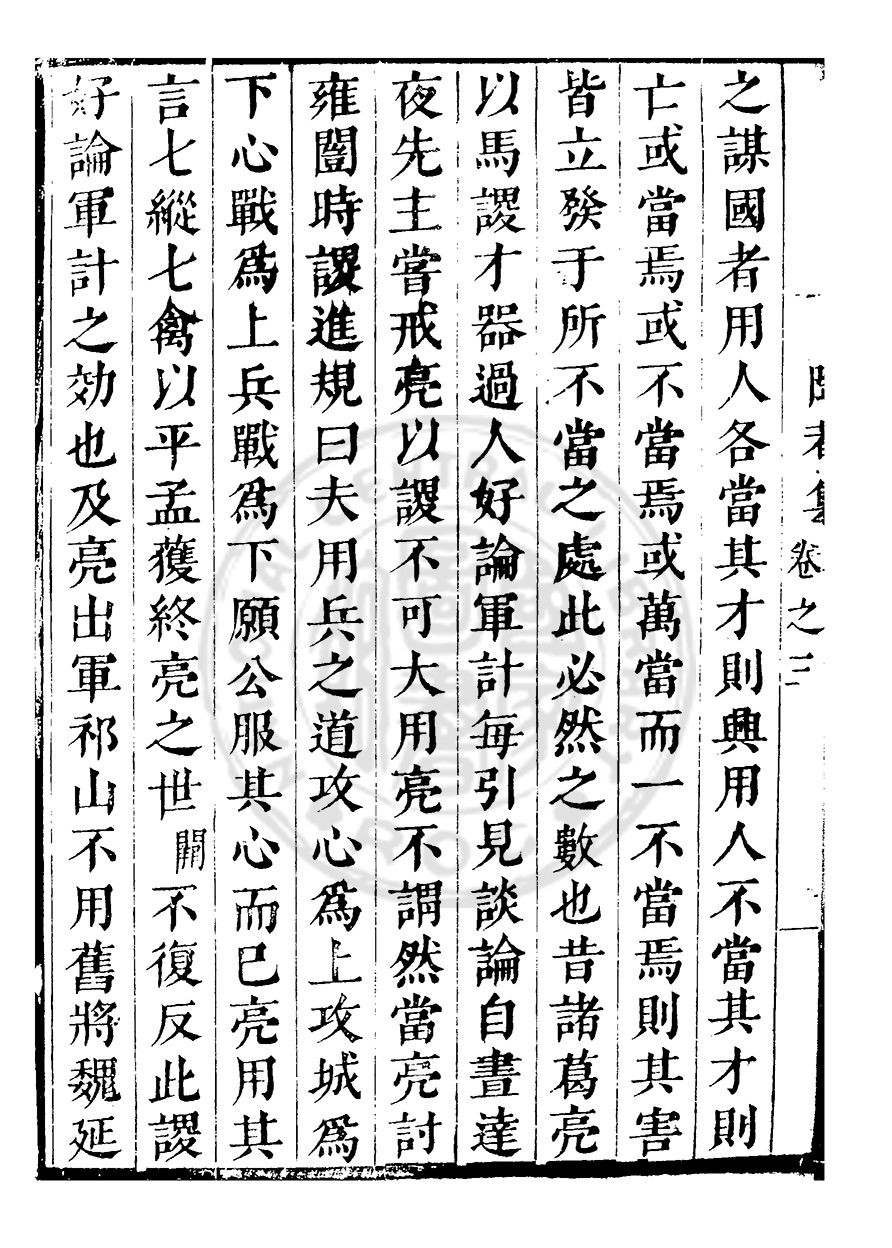 卷之三
之謀國者用人各當其才則興用人不當其才則
亡或當焉或不當焉或萬當而一不當焉則其害
皆立發于所不當之處此必然之數也昔諸葛亮
以馬謖才器過人好論軍計每引見談論自晝達
夜先主嘗戒亮以謖不可大用亮不謂然當亮討
雍闓時謖進規曰夫用兵之道攻心為上攻城為
下心戰為上兵戰為下願公服其心而巳亮用其
言七縱七禽以平孟獲終亮之世關不復反此謖
好論軍計之効也及亮出軍祁山不用舊將魏延